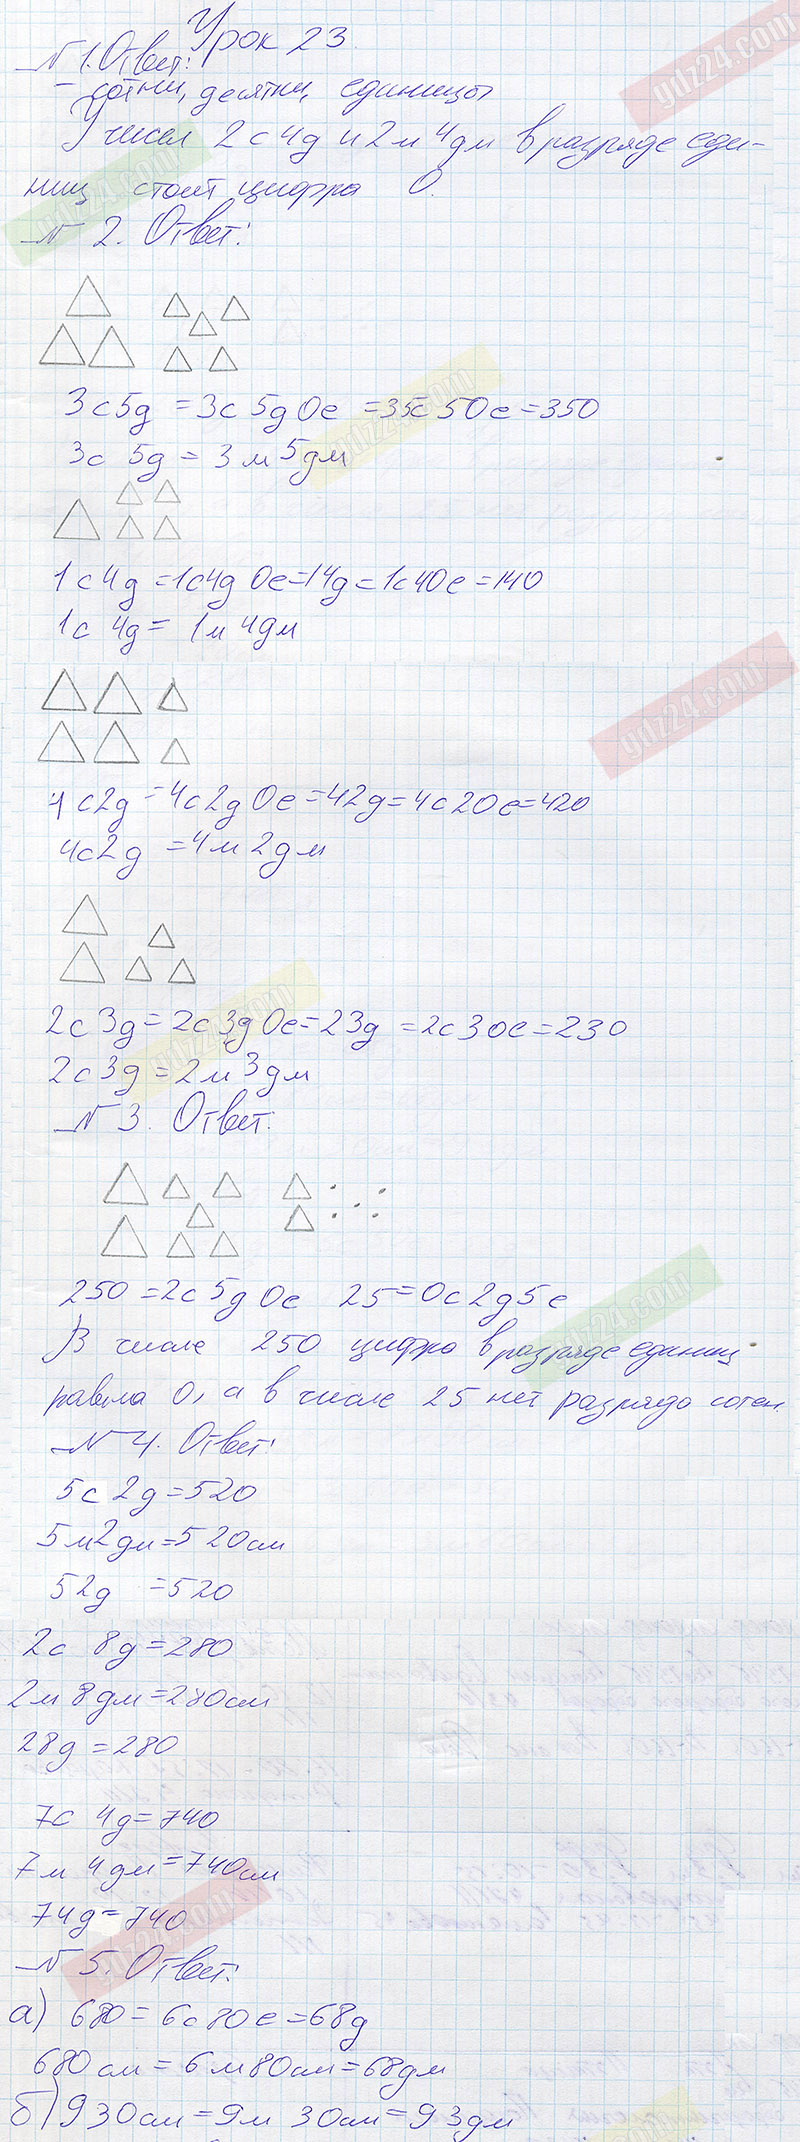 Урок 23.
№ 1. Ответ:
– сотни, десятки, единицы
У чисел 2с4д и 2м 4дм в разряде еди-
ниц стоит цифра 0.
№ 2. Ответ:
3с5д = 3с 5д 0е = 35с 50е = 350
3с 5д = 3м 5дм
1с4д = 1с4д 0е = 14д = 1с40е = 140
1с 4д = 1м 4дм
4с2д = 4с2д 0е = 42д = 4с20е = 420
4с2д = 4м 2дм
2с 3д = 2с 3д 0е = 23д = 2с30е = 230
2с3д = 2м 3дм
№ 3. Ответ:
250 = 2с 5д 0е 25 = 0с2д5е
В числе 250 цифра в разряде единиц
равна 0, а в числе 25 нет разряда сотен.
№ 4. Ответ:
5с 2д = 520
5м2дм = 520см
52д = 520
2с 8д = 280
2м 8дм = 280см
28д = 280
7с 4д = 740
7м 4дм = 740см
74д = 740
№ 5. Ответ:
а) 680 = 6с80е = 68д
680см = 6м80см = 68дм
б) 930см = 9м 30см = 93дм
gdz24.com
gdz24.com
gdz24.com
gdz24.com
gdz24.com
gdz24.com
gdz24.com